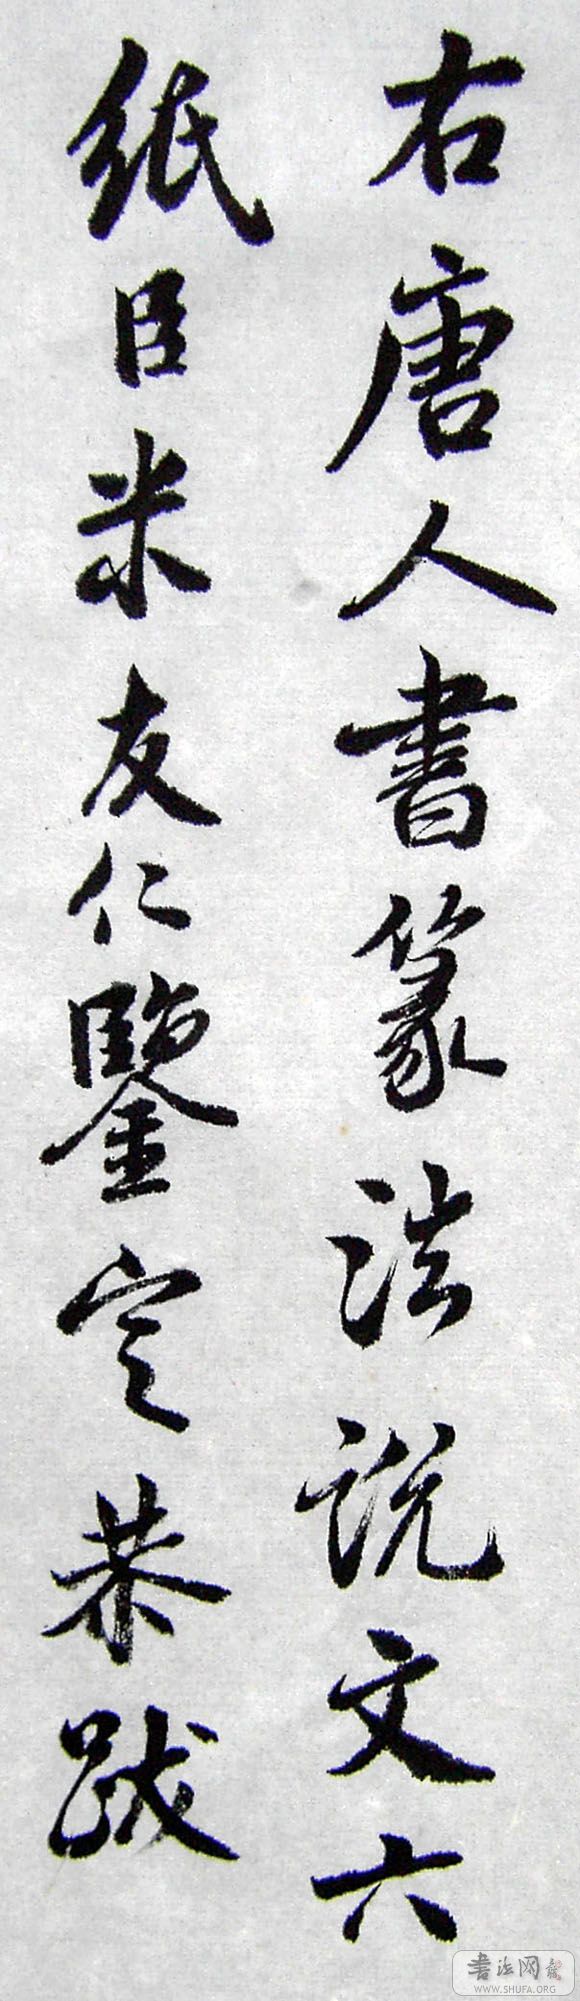 右唐人書篆法説文六
紙臣米友仁鑒定恭跋
書法网
WWW.SHUFA.ORG